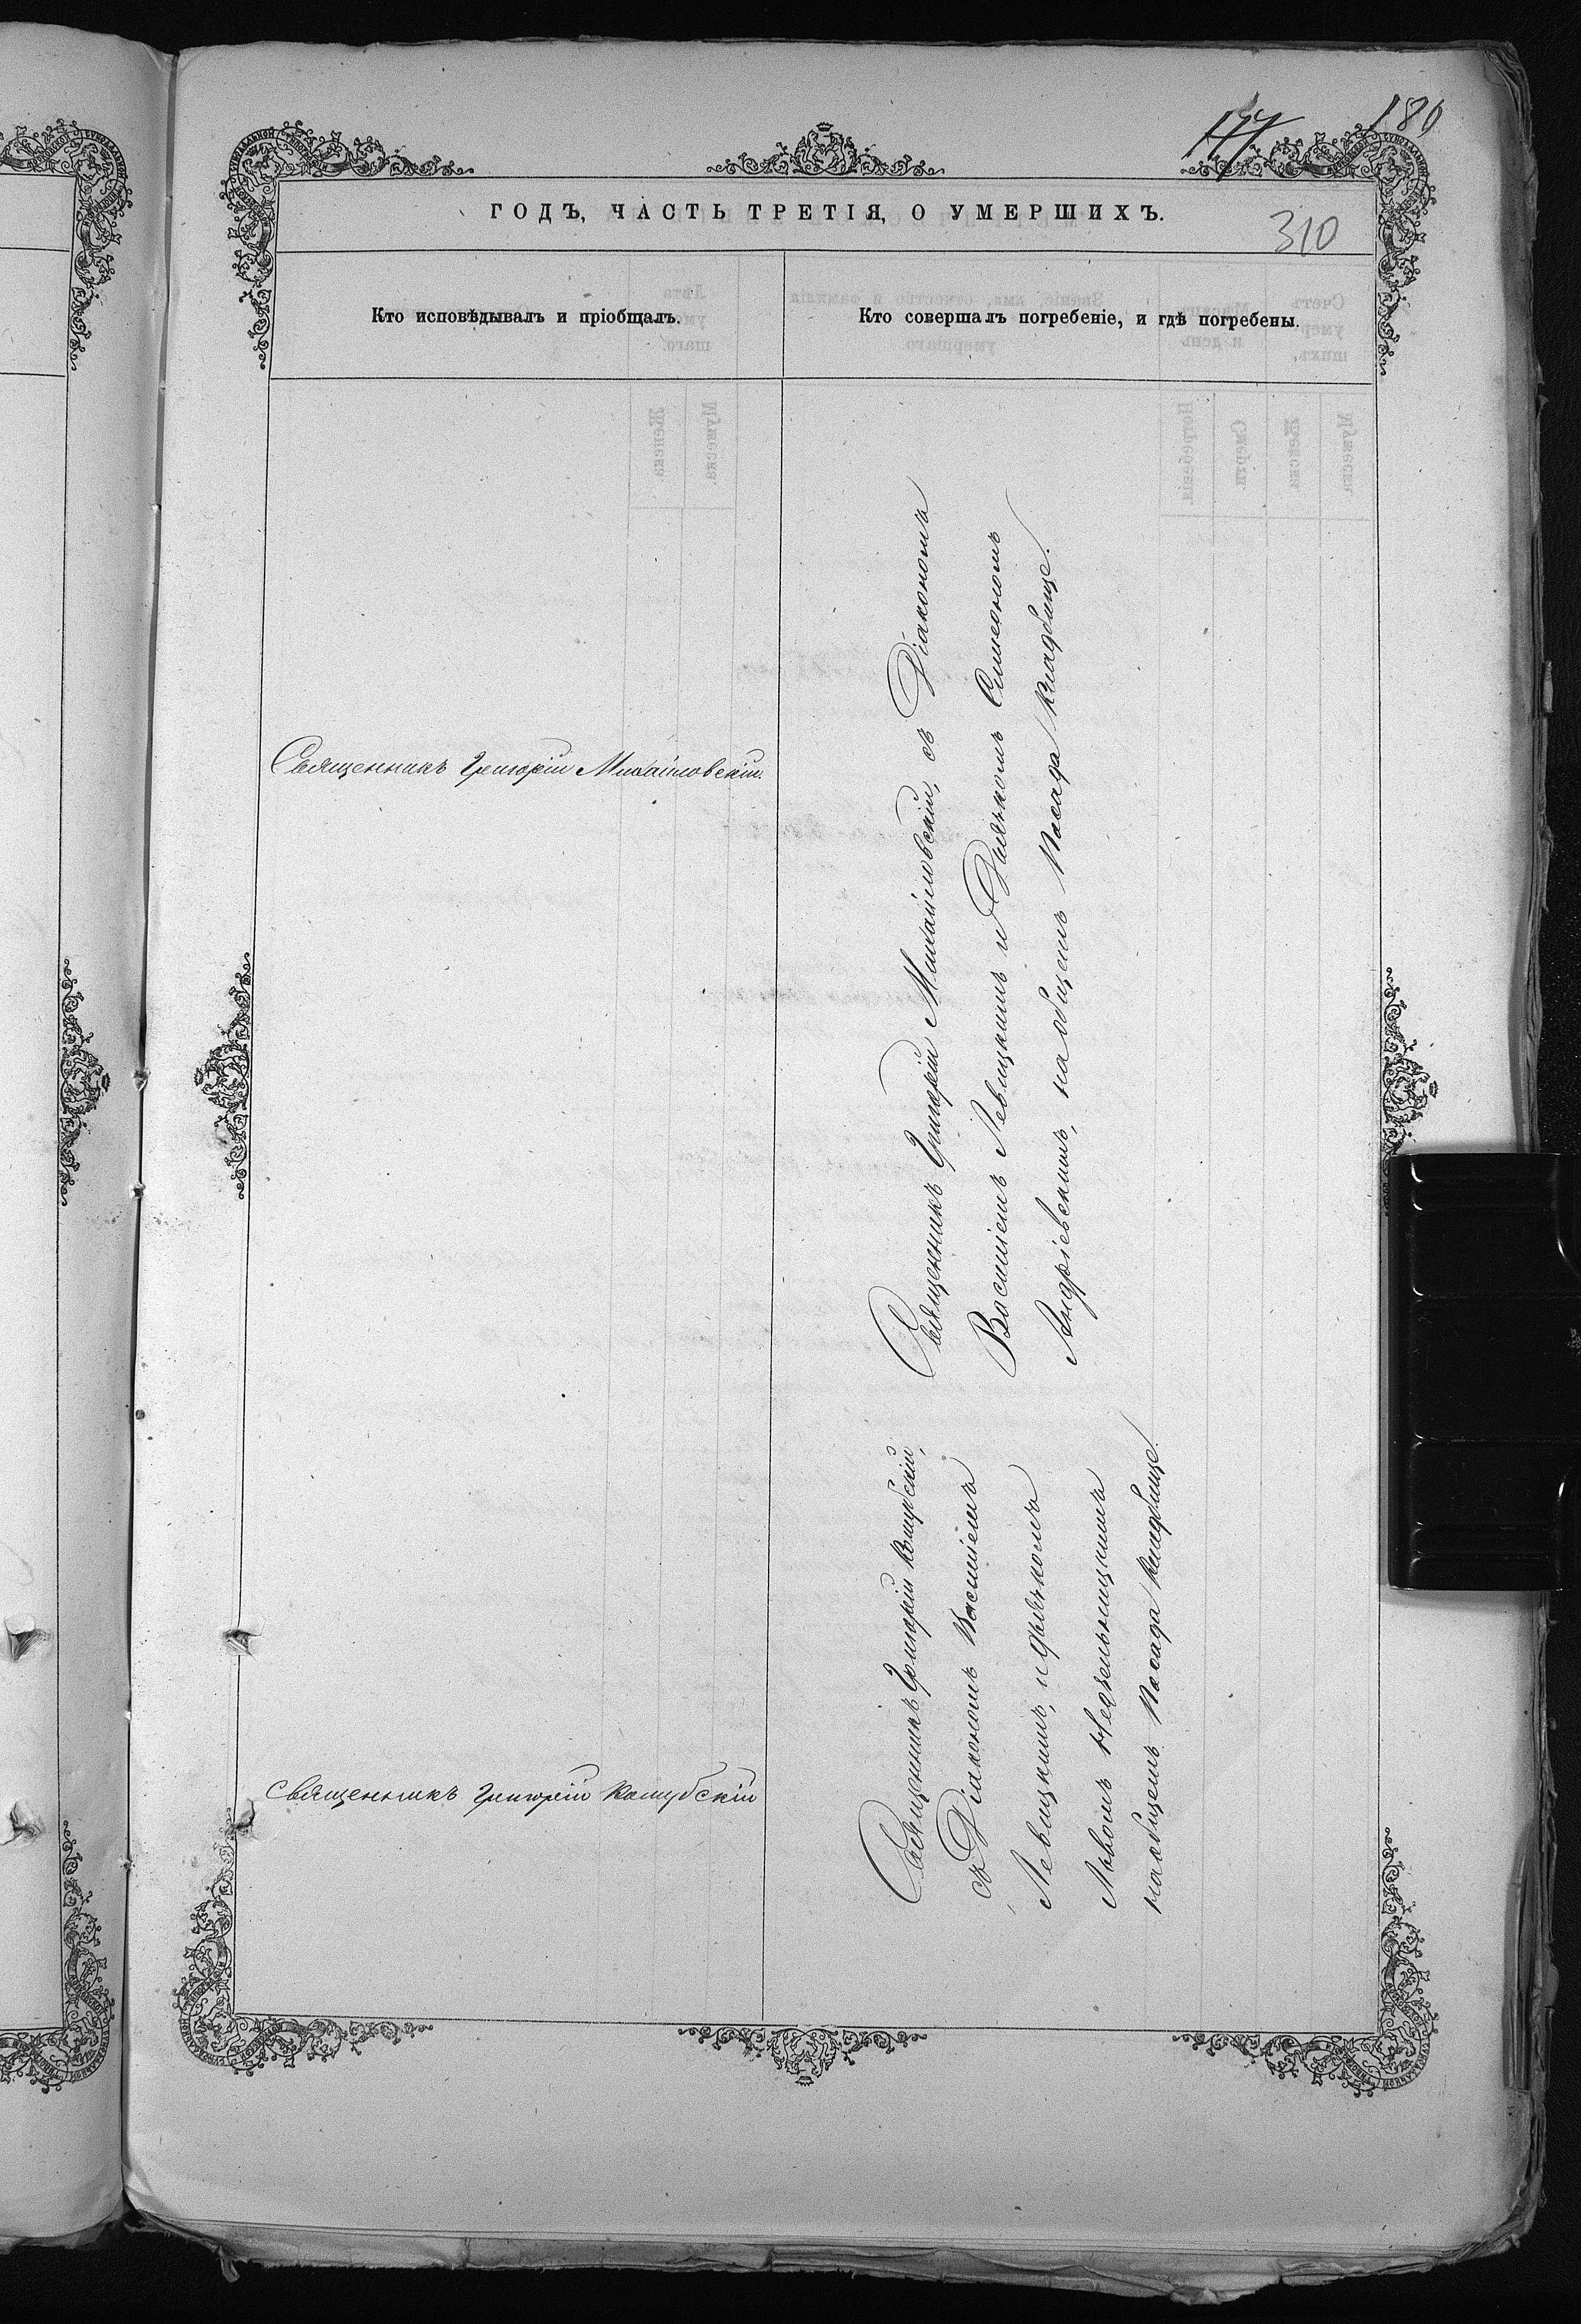 177
180
ГОДЪ, ЧАСТЬ ТРЕТІЯ, О УМЕРШИХЪ.
310
Кто исповѣдывалъ и пріобщалъ.
Кто совершалъ погребеніе, и гдѣ погребены.
Священникъ Григорій Михайловскій.
Священникъ Григорій Михайловскій, съ Діакономъ
Василіемъ Левицкимъ и Дьячкомъ Симеономъ
Андріевскимъ, на общемъ Посада кладбище.
Священникъ Григорій Коцубскій
Священникъ Григорій Коцубскій,
съ Діакономъ Василіемъ
Левицкимъ, и дьячкомъ
Львомъ Недзельницкимъ
на общемъ Посада кладбище.